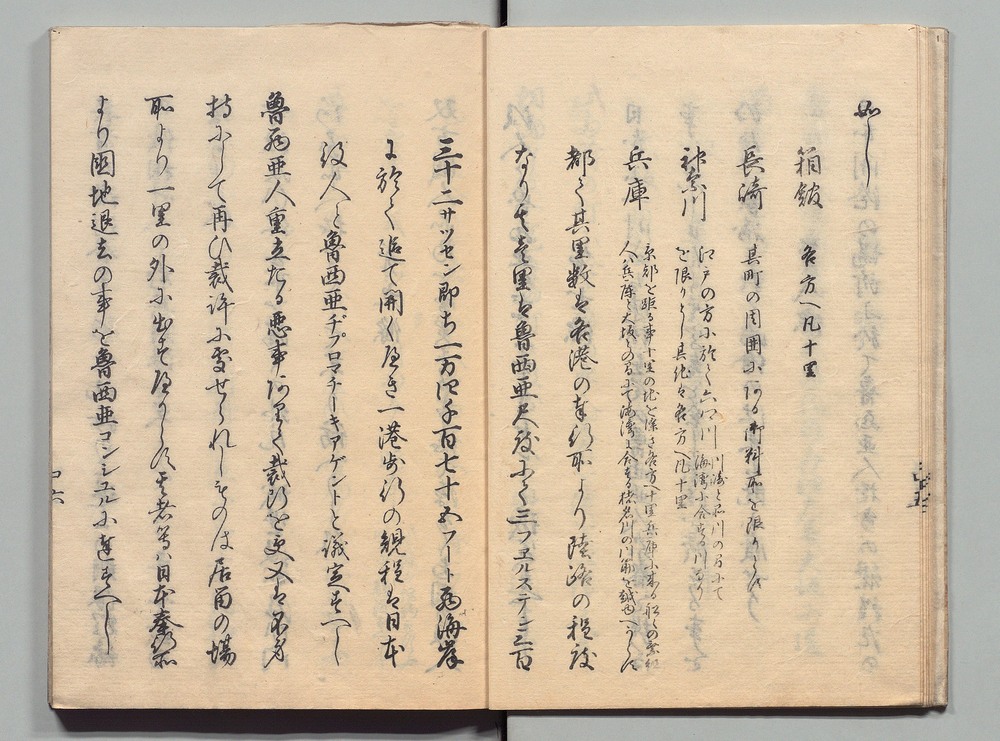 如し
箱館 各方へ凡十里
長崎 其町の周囲にある御料所を限りとす
神奈川 江戸の方に於て六郷川 川崎と品川の間にて海湾に会する川なり
を限りとし其他は各方へ凡十里
兵庫 京都を距る事十里の地を除き各方へ十里兵庫に来る船々の乗組
人は兵庫と大坂との間にて海湾に会する猪名川の川筋を越ゆへからす
都て其里数は各港の奉行所より陸路の程度
なり其壱里は魯西亜尺度にて三ウエルステン三百
三十二サツセン即ち一万四千百七十五フート西海岸
に於て追て開くへき一港歩行の規程は日本
役人と魯西亜ヂプロマチーキアゲントと議定すへし
魯西亜人重立たる悪事ありて裁断を受又は不身
持にして再ひ裁許に処せられしものは居留の場
所より一里の外に出すへからす其者等は日本奉行所
より国地退去の事を魯西亜コンシユルに達すへし